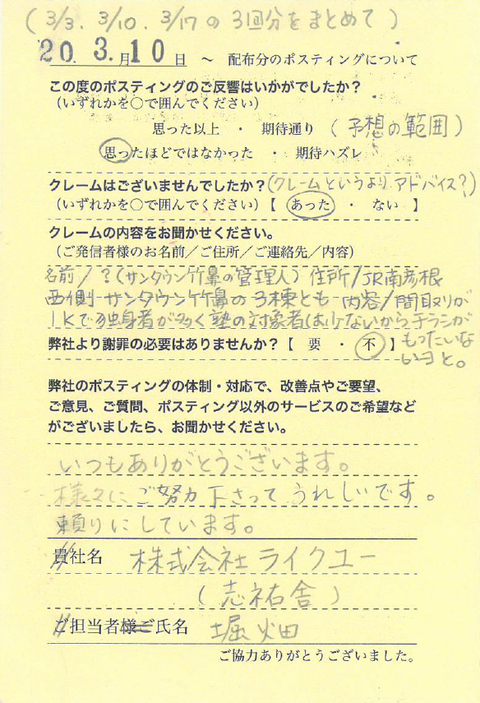 (3/3、3/10、3/17の3回分をまとめて)
20.3.月10日 ～ 配布分のポスティングについて
この度のポスティングのご反響はいかがでしたか?
(いずれかを○で囲んでください)
思った以上 ・ 期待通り (予想の範囲)
思ったほどではなかった ・ 期待ハズレ
クレームはございませんでしたか?(クレームというより アドバイス?)
(いずれかを○で囲んでください)【 あった ・ ない 】
クレームの内容をお聞かせください。
(ご発信者様のお名前／ご住所／ご連絡先／内容)
名前/?(サンタウン竹鼻の管理人) 住所/JR南彦根
西側 サンタウン竹鼻の3棟とも 内容/間取りが
1Kで独身者が多く塾の対象者は少ないからチラシが
弊社より謝罪の必要はありませんか?【 要 ・ 不 】もったいな
いヨと。
弊社のポスティングの体制・対応で、改善点やご要望、
ご意見、ご質問、ポスティング以外のサービスのご希望など
がございましたら、お聞かせください。
いつもありがとうございます。
様々にご努力下さってうれしいです。
頼りにしています。
貴社名 株式会社ライクユー
(志祐舎)
ご担当者様ご氏名 堀畑
ご協力ありがとうございました。